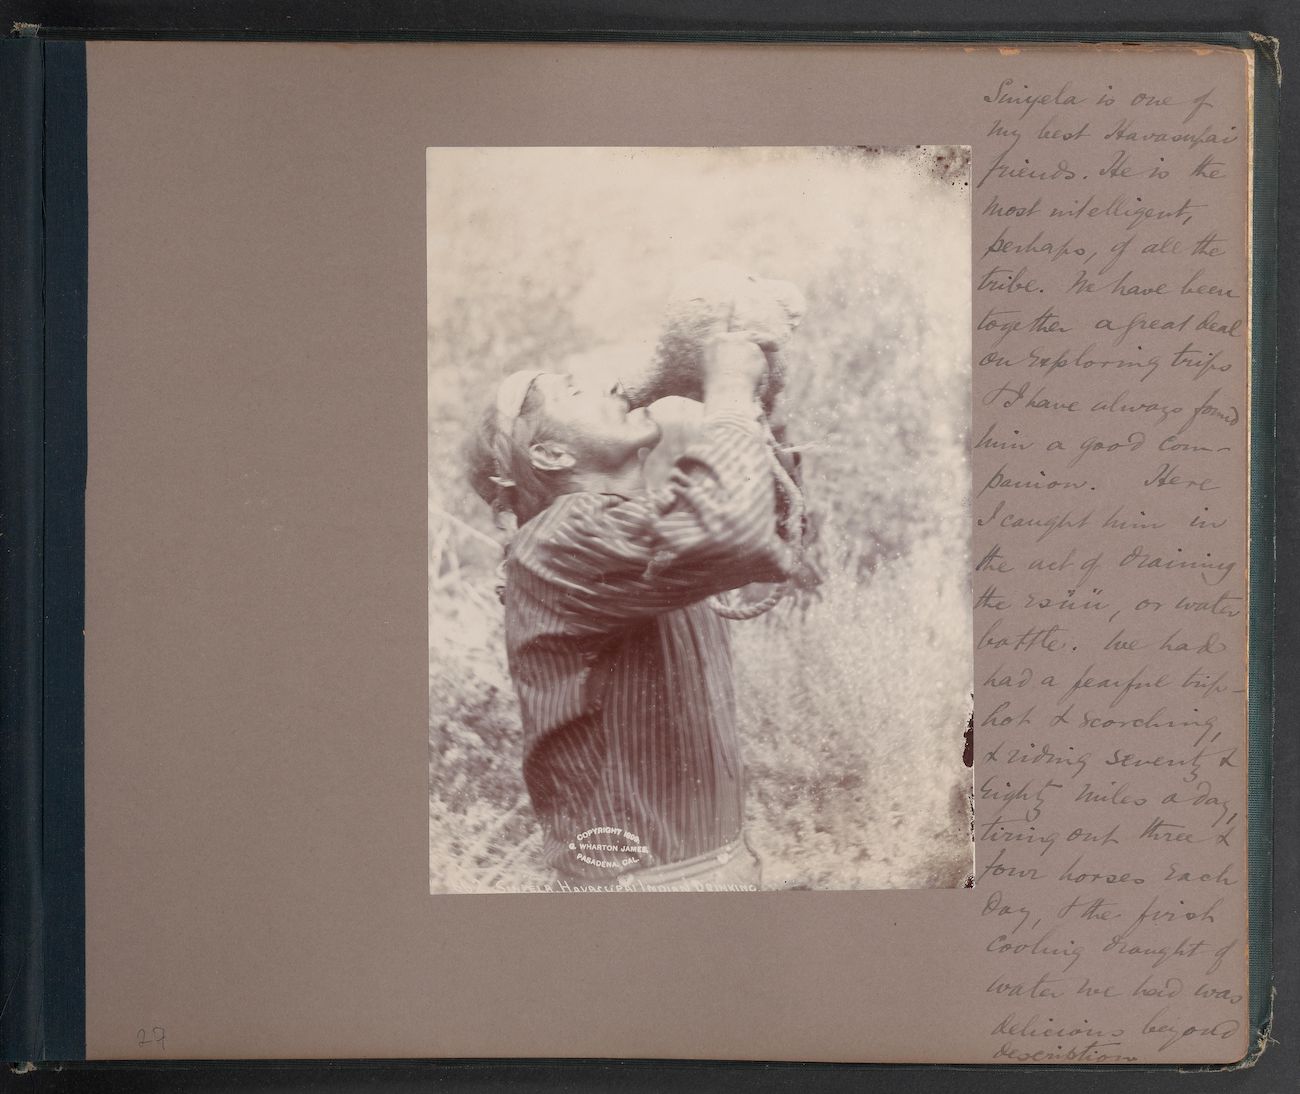 Sinyela is one of
my best Havasupai
friends. He is the
most intelligent,
perhaps, of all the
tribe. We have been
together a great deal
on exploring trips
& I have always found
him a good com-
panion. Here
I caught him in
the act of draining
the esüü, or water
bottle. We had
had a fearful trip -
hot & scorching,
& riding seventy &
eighty miles a day,
tiring out three &
four horses each
day, & the first
cooling draught of
water we had was
delicious beyond
description.
COPYRIGHT
G. WHARTON JAMES,
PASADENA, CAL.
SINYELA HAVASUPAI INDIAN DRINKING.
27